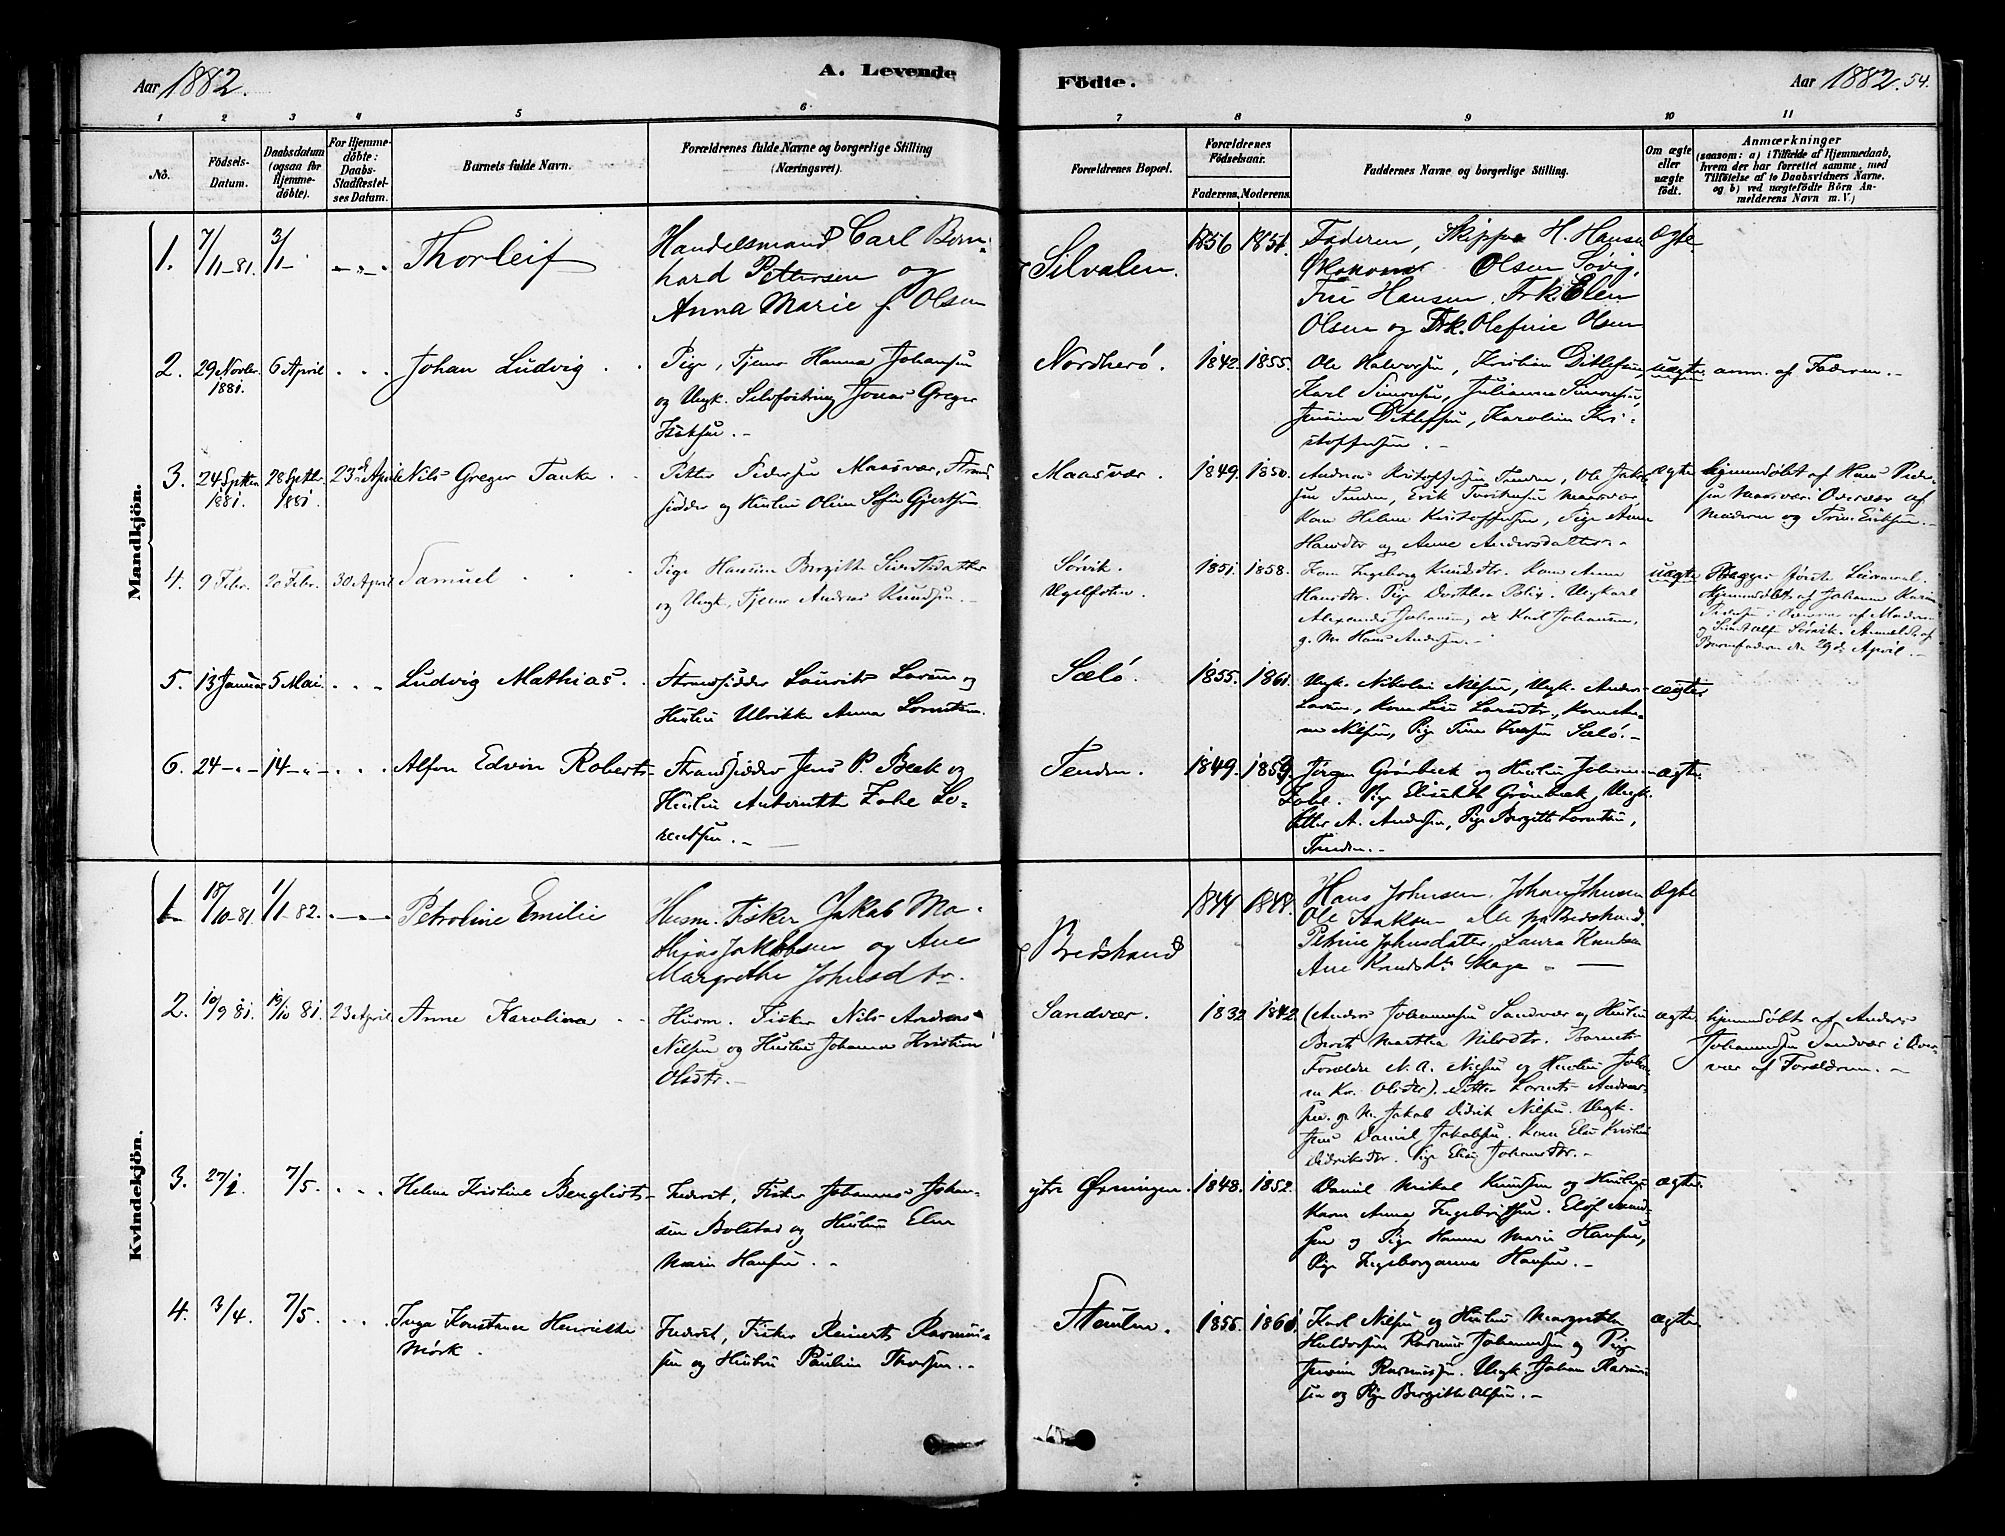 Aar 1882.
A. Levende
Födte.
Aar 1882. 54.
1 2 3 4 5 6 7 8 9 10 11
No.
Födsels-Datum.
Daabsdatum (ogsaa for Hjemmedöbte).
For Hjemmedöbte: Daabs-Stadfæstelses Datum.
Barnets fulde Navn.
Forældrenes fulde Navne og borgerlige Stilling (Næringsvei).
Forældrenes Bopæl.
Forældrenes Födselsaar.
Faderens. Moderens.
Faddernes Navne og borgerlige Stilling.
Om ægte eller uægte födt.
Anmærkninger
(saasom: a) i Tilfælde af Hjemmedaab, hvem der har forrettet samme, med Tilföielse af to Daabsvidners Navne, og b) ved uægtefödte Börn Anmelderens Navn m. V.)
Mandkjön.
1. 7/11-81. 3/1- Thorleif
Handelsmand Carl Bern-
hard Pettersen og
Anna Marie f. Olsen
Silvalen. 1856 1851.
Faderen, Skipper H. Hansen
Olsen Søvig,
Fru Hansen. Frk. Elen
Olsen og Frk. Olefine Olsen
Ægte
2. 29 Novbr. 1881. 6 April Johan Ludvig
Pige, Tjener Hanna Johansen
og Ungk. Jonas Greger
Isaksen.
Nordherö. 1842. 1855.
Ole Halvorsen, Kristian Ditlefsen,
Karl Simonsen, Julianna Simonsen,
Ditlefsen, Karoline Kri-
stoffersen.
uægte anm. af Faderen.
3. 24 Septbr. 1881. 28 Septbr. 1881. 23 April Nils Greger Tanke
Petter Pedersen Maasvær, Strand
sidder og Hustru Oline Sofie Gjertsen
Maasvær. 1849. 1850.
Andreas Kristoffersen Tenden, Ole Jak-
sen Tenden, Erik Maasvær
Kone Helene Kristoffersen, Pige Anne
Hansdtr og Anne Andersdatter.
Ægte hjemmedøbt af Hans Peder-
sen Maasvær i Overvær af
Moderen og Trine Eriksen.
4. 9 Febr. 20 Febr. 30 April Samuel
Pige Hansine Bergitte
og Ungk., Tjener Andreas Knudsen.
Sørvik. 1851. 1858.
Ugelfoten.
Kone Ingeborg Knudsdtr. Kone Anne
Hansdtr. Pige Dorthea Ungkarl
Alexander Johansen, Karl Johansen,
g. M. Hans Andersen.
uægte
Hjemmedøbt af Johanne
Pedersen i Overvær af Moderen
Sørvik. Anmeldt af
Barnefaderen den 29de April.
5. 13 Januar 5 Mai. Ludvig Mathias.
Strandsidder Laurits Larsen og
Hustru Ulrikke Anna Lorentsen.
Sælö. 1855. 1861.
Ungk. Nikolai Nilsen, Ungk. Anders
Larsen, Kone Lise Larsdtr.,
Nilsen, Pige Trine Sælö.
ægte
6. 24 14 Alfon Edvin Roberts
Strandsidder Jens P. Beck og
Hustru Antonette Zahl Lo-
rentsen.
Tenden. 1849. 1853.
Jörgen Grönbeck og Hustru Johanna
Zahl. Pige Elisabeth Grönbeck, Ungk.
Petter A. Andersen, Pige Bergitte Lorentsen,
Tenden.
Ægte
Kvindekjön.
1. 18/10-81. 1/1-82. Petroline Emilie
Husm. Fisker Jakob Ma-
thias Jakobsen og Ane
Margrethe Johnsdtr.
Bredstrand 1844 1848.
Hans Johnsen. Johan Johnsen
Ole Isaksen alle fra Bredstrand.
Petrine Johnsdatter, Laura Knudsen
Ane Knudsdtr. Skaga
Ægte
2. 10/9 81. 19/10 81. 23 April. Anne Karolina
Husm. Fisker Nils Andreas
Nilsen og Hustru Johanna Kristine
Olsdtr.
Sandvær. 1832 1842.
(Anders Johannesen Sandvær og Hustru
Berit Martha Nilsdtr. Barnets
Forældre N. A. Nilsen og Hustru Johan-
na Kr. Olsdtr). Petter Lorents Andreas-
sen. g. M. Jakob Didrik Nilsen. Ungk.
Jens Daniel Jakobsen. Kone Elen Kristine
Didriksdtr. Pige Elise Johansdtr.
ægte hjemmedøbt af Anders
Johannesen Sandvær i Over-
vær af Forældrene.
3. 27/2. 7/5. Helene Kristine Bergliots
Inderst, Fisker Johannes Johan-
sen Bolstad og Hustru Elen
Marie Hansen.
ytre Øxningen. 1848. 1852.
Daniel Mikal Knudsen og Hustru
Karen Anna Ingebritsen. Elof Knud-
sen og Pige Hanna Marie Hansen,
Pige Ingeborganna Hansen.
ægte
4. 3/4. 7/5. Inga Konstance Henriette
Mörk.
Inderst, Fisker Reinert Rasmus-
sen og Hustru Pauline Thorsen.
Stoulen. 1855. 1861.
Karl Nilsen og Hustru Margrethe
Haldorsen Rasmus Johannesen og Pige
Jensine Rasmussen. Ungk. Johan Rasmus
sen og Pige Bergitte Olsen.
ægte